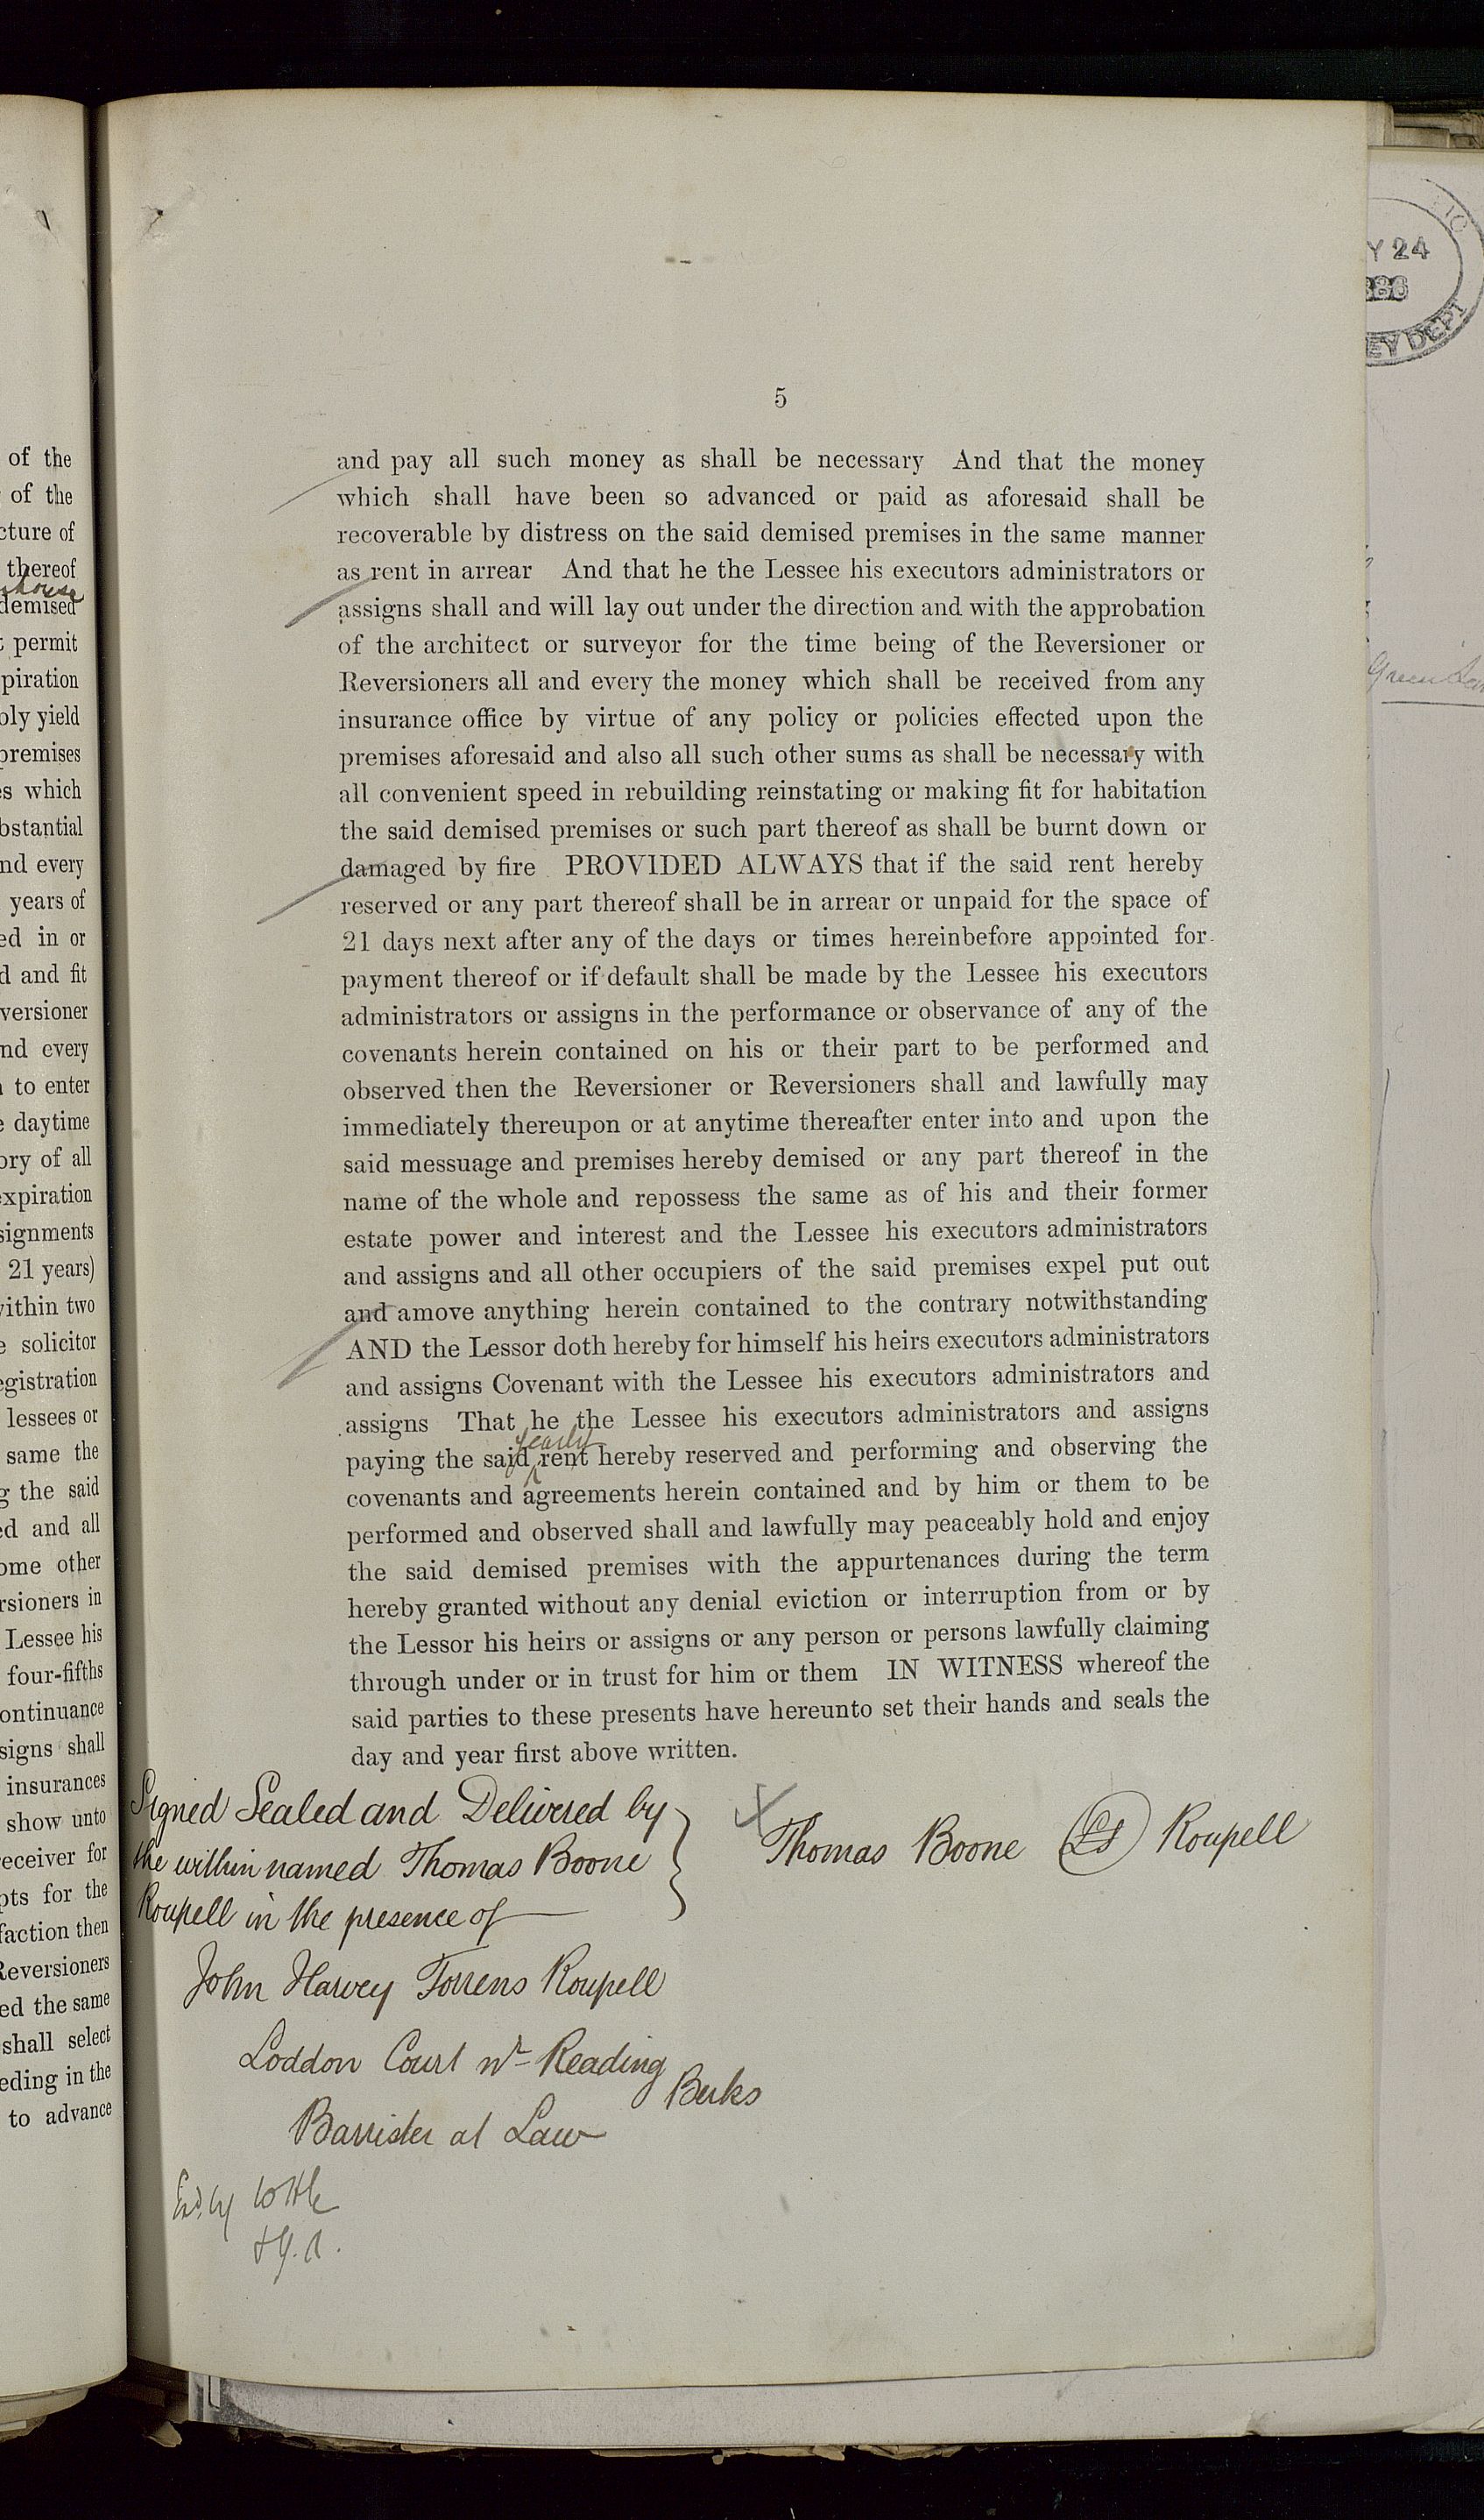 of the
of the
cture of
thereof
house
demised
permit
piration
bly yield
premises
es which
bstantial
nd every
years of
ed in or
d and fit
versioner
nd every
to enter
e daytime
ory of all
expiration
signments
21 years)
within two
e solicitor
egistration
lessees or
same the
g the said
ed and all
ome other
rsioners in
Lessee his
four-fifths
ontinuance
signs shall
insurances
show unto
receiver for
pts for the
faction then
Reversioners
ed the same
shall select
eding in the
to advance
5
and pay all such money as shall be necessary And that the money
which shall have been so advanced or paid as aforesaid shall be
recoverable by distress on the said demised premises in the same manner
as rent in arrear And that he the Lessee his executors administrators or
assigns shall and will lay out under the direction and with the approbation
of the architect or surveyor for the time being of the Reversioner or
Reversioners all and every the money which shall be received from any
insurance office by virtue of any policy or policies effected upon the
premises aforesaid and also all such other sums as shall be necessary with
all convenient speed in rebuilding reinstating or making fit for habitation
the said demised premises or such part thereof as shall be burnt down or
damaged by fire PROVIDED ALWAYS that if the said rent hereby
reserved or any part thereof shall be in arrear or unpaid for the space of
21 days next after any of the days or times hereinbefore appointed for
payment thereof or if default shall be made by the Lessee his executors
administrators or assigns in the performance or observance of any of the
covenants herein contained on his or their part to be performed and
observed then the Reversioner or Reversioners shall and lawfully may
immediately thereupon or at anytime thereafter enter into and upon the
said messuage and premises hereby demised or any part thereof in the
name of the whole and repossess the same as of his and their former
estate power and interest and the Lessee his executors administrators
and assigns and all other occupiers of the said premises expel put out
and amove anything herein contained to the contrary notwithstanding
AND the Lessor doth hereby for himself his heirs executors administrators
and assigns Covenant with the Lessee his executors administrators and
assigns That he the Lessee his executors administrators and assigns
yearly
paying the said rent hereby reserved and performing and observing the
covenants and agreements herein contained and by him or them to be
performed and observed shall and lawfully may peaceably hold and enjoy
the said demised premises with the appurtenances during the term
hereby granted without any denial eviction or interruption from or by
the Lessor his heirs or assigns or any person or persons lawfully claiming
through under or in trust for him or them IN WITNESS whereof the
said parties to these presents have hereunto set their hands and seals the
day and year first above written.
Signed Sealed and Delivered by
the within named Thomas Boone
Roupell in the presence of
Thomas Boone LS Roupell
John Harvey Torrens Roupell
Loddon Court nr Reading
Berks
Barrister at Law
Y 24
EY DEPT
Green